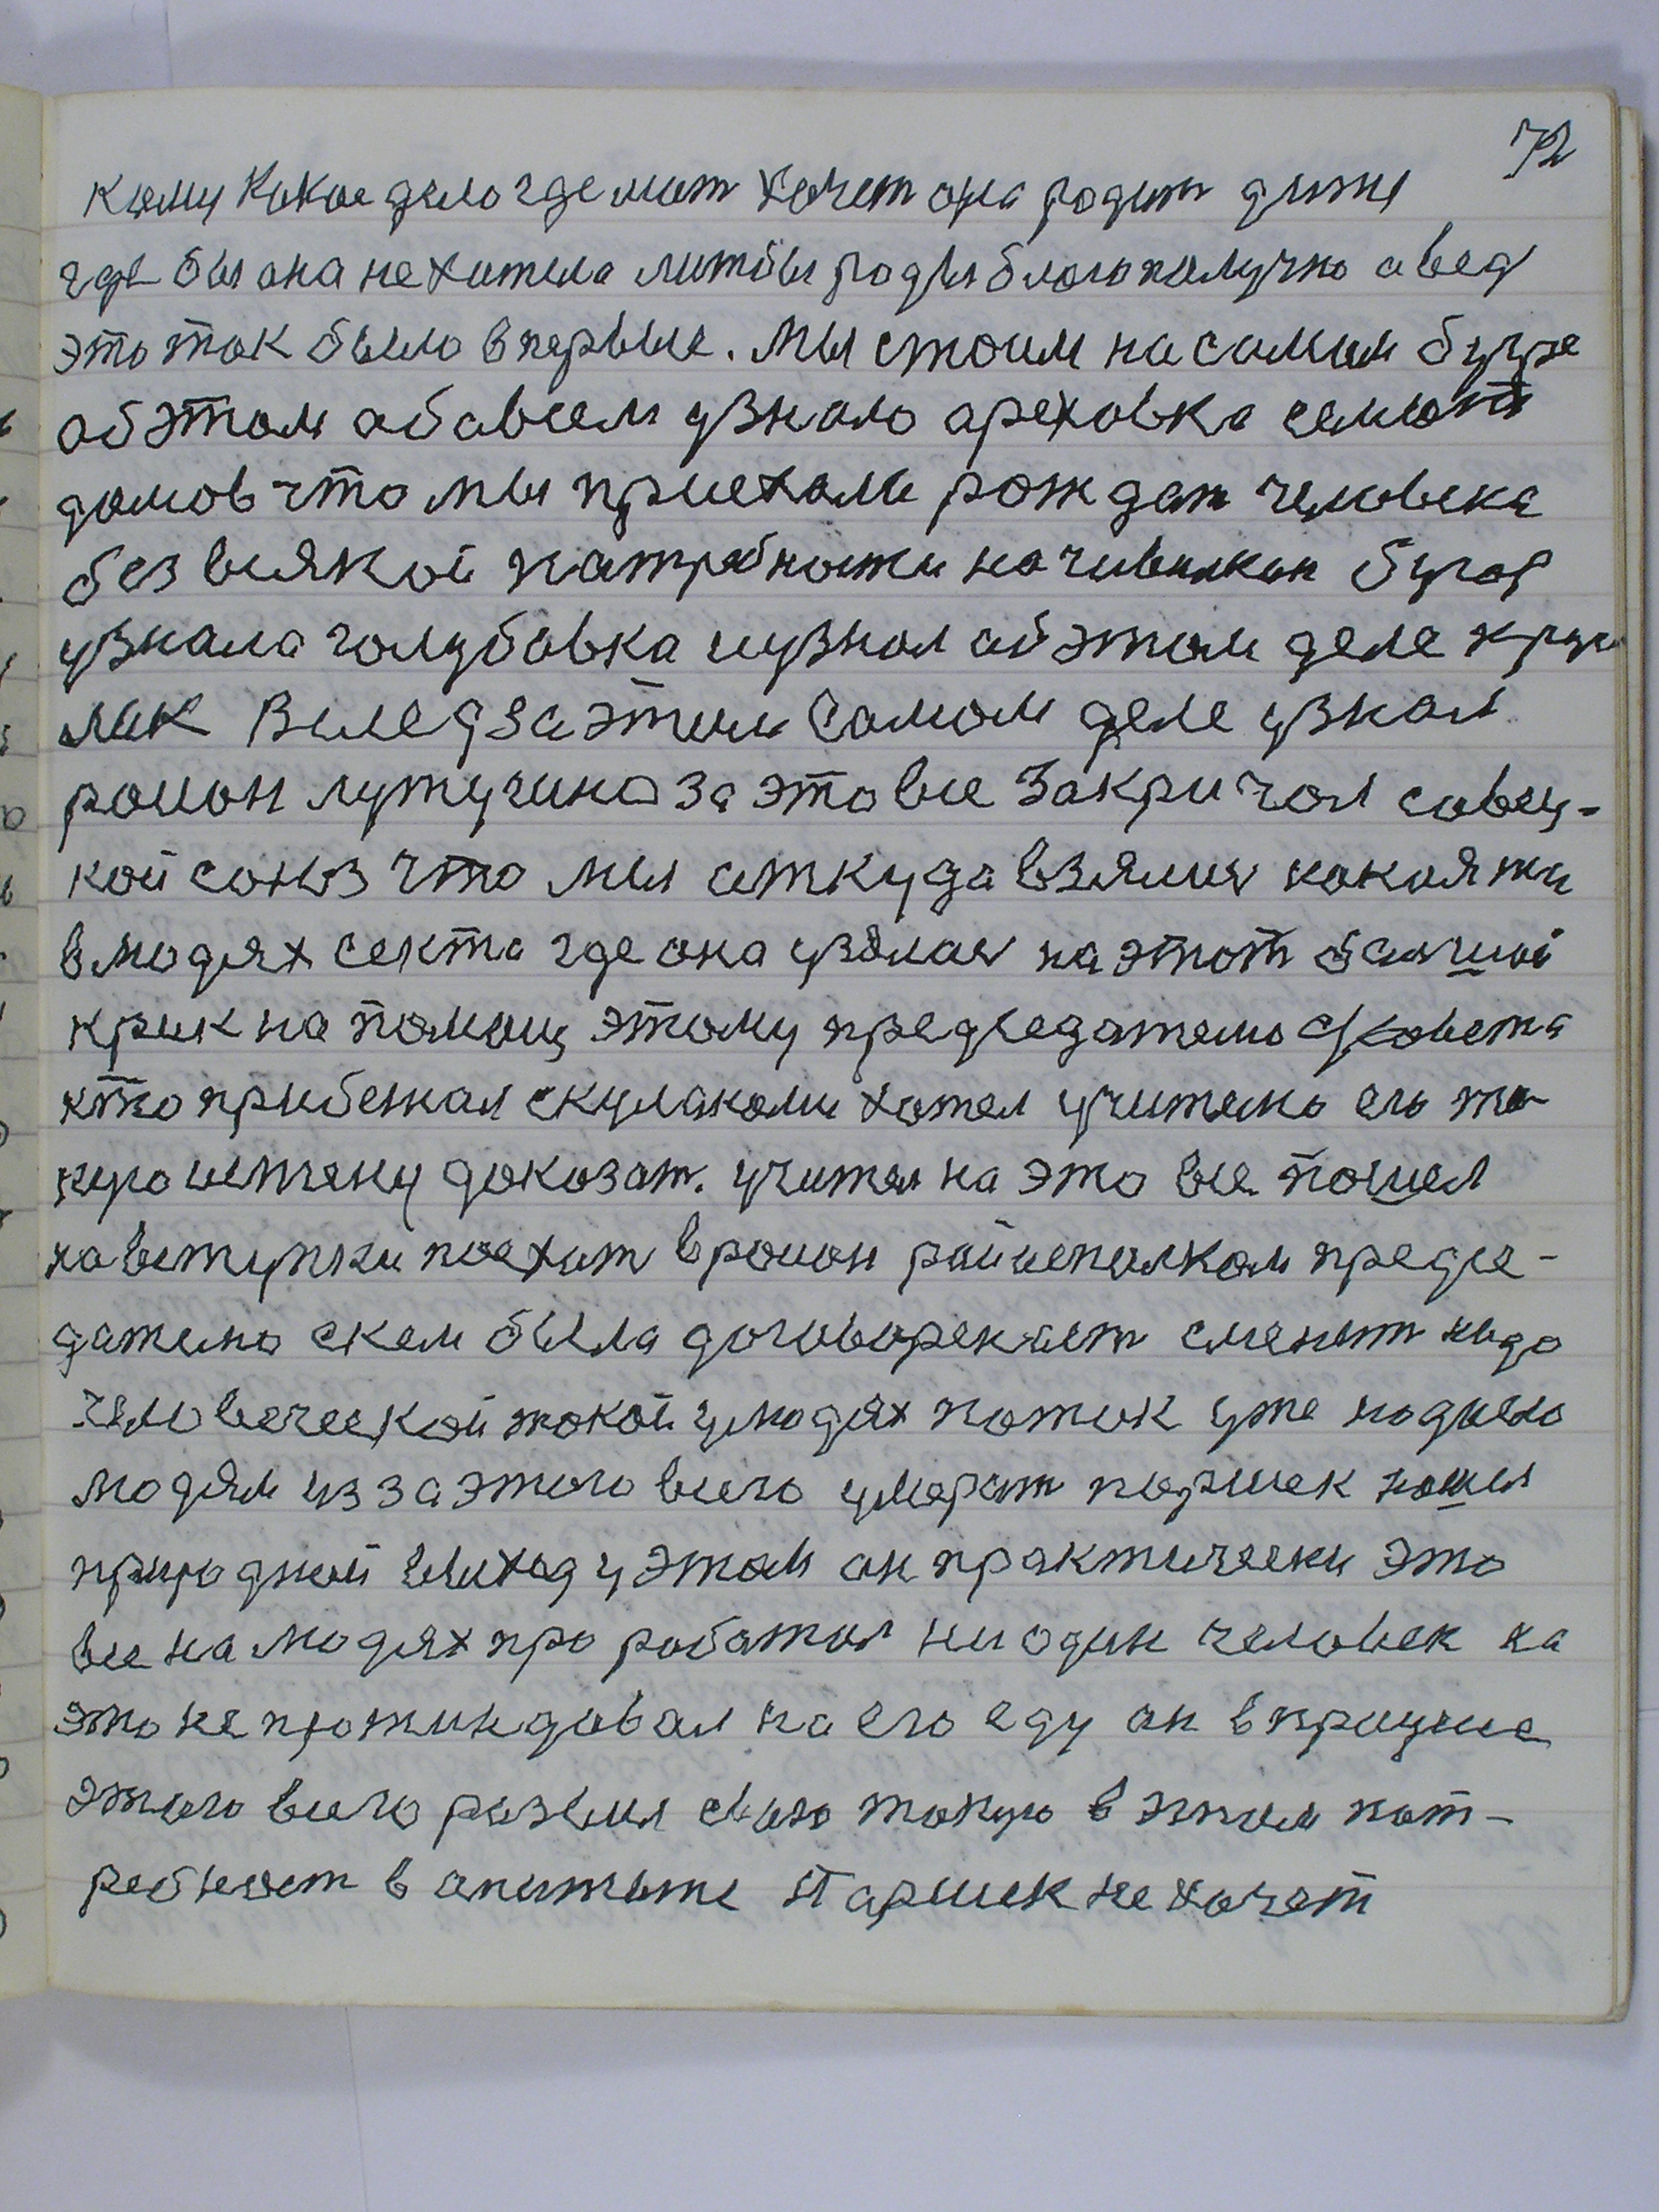 72
кому какое дело где мат хочет она родит дитя
где бы она не хотела литбы родыя благополучно авед
это так было впервые. Мы стоим насамом бугре
обэтом абавсем узнало ареховка семсот
домов что мы приехали рождат человека
без всякой патребности начивилкин бугор
узнала голубовка иузнал обэтом деле круг
лик Вслед заэтим самом деле узнал
раион лутугино заэтовсе закричал совец-
кой союз что мы аткуда взялис какаята
влюдях секта гдеона узялас наэтот балшой
крик напомощ этому председателю с/совета
кто прибежал скулаками хотел учителю его та
куюистену доказат. учител на это все пошел
навступки поехат враион райисполком предсе-
дателю скем была договореност сменит надо
человеческой такой улюдях поток уже надоело
людям иззаэтого всего умерат паршек нашел
природной выход уэтом он практически это
все на людях проработал ниодин человек на
это непротиндовал на его еду он впроцусе
этого всего развил свою такую в этом пот-
ребност в апитите Паршек нехочет